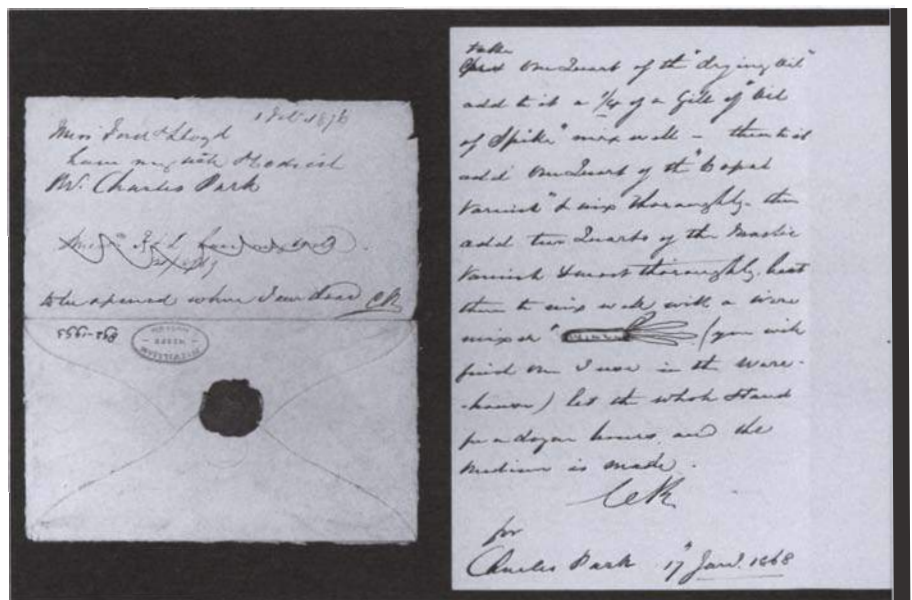 1 Feb 1876
Miss Lloyd
Charles Park
to be opened when I am dead CR
892-1955
take
One Quart of the "drying Oil"
add to it a 1/4 of a Gill of "Oil
of Spike" mix well – then to it
add One Quart of the "Copal
Varnish" & mix thoroughly. then
add two Quarts of the Mastic
Varnish & most thoroughly. beat
them to mix well with a wire
mixer (you will
find one I use in the ware-
-house) let the whole stand
for a dozen hours and the
Medium is made.
CR
for
Charles Park 17 Jany. 1868